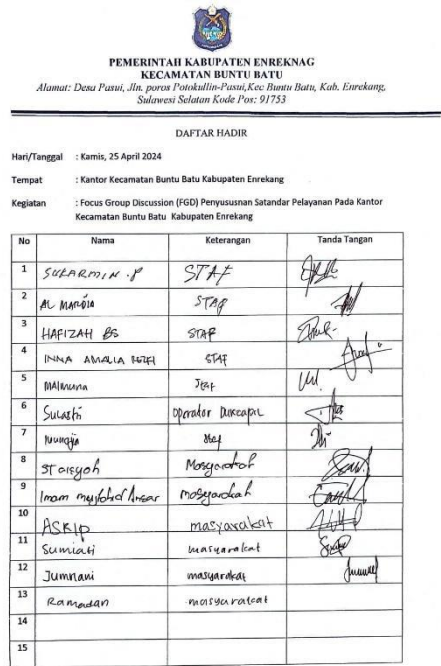 PEMERINTAH KABUPATEN ENREKNAG
KECAMATAN BUNTU BATU
Alamat: Desa Pasui, Jln. poros Potokullin-Pasui,Kec Buntu Batu, Kab. Enrekang,
Sulawesi Selatan Kode Pos: 91753
DAFTAR HADIR
Hari/Tanggal : Kamis, 25 April 2024
Tempat : Kantor Kecamatan Buntu Batu Kabupaten Enrekang
Kegiatan : Focus Group Discussion (FGD) Penyususnan Satandar Pelayanan Pada Kantor
Kecamatan Buntu Batu Kabupaten Enrekang
No Nama Keterangan Tanda Tangan
1 SUKARMIN .P STAF
2 AL MARDIA STAF
3 HAFIZAH BS STAF
4 INNA AMALIA STAF
5 Maimuna Staf
6 Sulastri Operator Dukcapil
7 Staf
8 ST Aisyah Masyarakat
9 Imam Ansar masyarakat
10 ASKIP masyarakat
11 Sumiati masyarakat
12 Jumriani masyarakat
13 Ramadan masyarakat
14
15